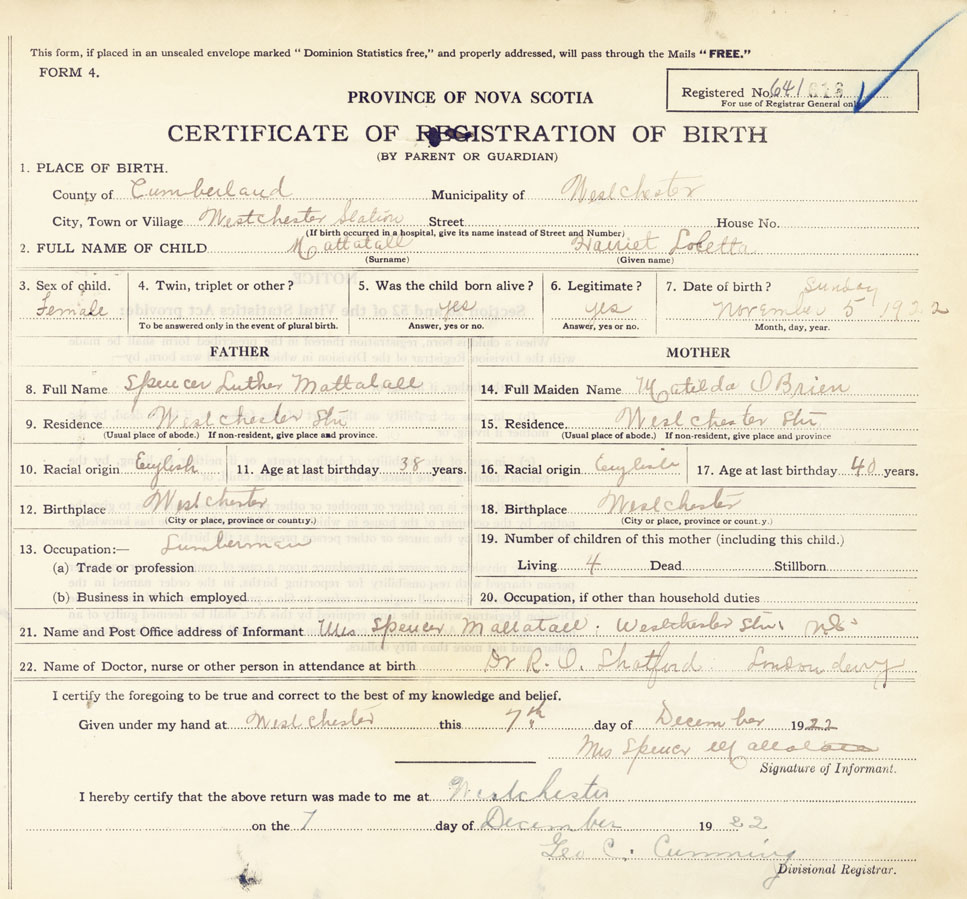 This form, if placed in an unsealed envelope marked "Dominion Statistics free," and properly addressed, will pass through the Mails "FREE."
FORM 4.
Registered No. 641
For use of Registrar General only
PROVINCE OF NOVA SCOTIA
CERTIFICATE OF REGISTRATION OF BIRTH
(BY PARENT OR GUARDIAN)
1. PLACE OF BIRTH.
County of Cumberland Municipality of Westchester
City, Town or Village Westchester Station Street House No.
(If birth occurred in a hospital, give its name instead of Street and Number)
2. FULL NAME OF CHILD Mattatall Harriet Loletta
(Surname) (Given name)
3. Sex of child. 4. Twin, triplet or other? 5. Was the child born alive? 6. Legitimate? 7. Date of birth? Sunday
Female yes yes November 5 1922
To be answered only in the event of plural birth. Answer, yes or no. Answer, yes or no. Month, day, year.
FATHER MOTHER
8. Full Name Spencer Luther Mattatall 14. Full Maiden Name Matilda OBrien
9. Residence Westchester Stn 15. Residence Westchester Stn
(Usual place of abode.) If non-resident, give place and province. (Usual place of abode.) If non-resident, give place and province
10. Racial origin English 11. Age at last birthday 38 years. 16. Racial origin English 17. Age at last birthday 40 years.
12. Birthplace Westchester 18. Birthplace Westchester
(City or place, province or country.) (City or place, province or count.y.)
13. Occupation:— Lumberman 19. Number of children of this mother (including this child.)
(a) Trade or profession Living 4 Dead Stillborn
(b) Business in which employed 20. Occupation, if other than household duties
21. Name and Post Office address of Informant Mrs Spencer Mattatall. Westchester Stn. N.S.
22. Name of Doctor, nurse or other person in attendance at birth Dr R. O. Shatford Londonderry
I certify the foregoing to be true and correct to the best of my knowledge and belief.
Given under my hand at Westchester this 7th day of December 1922
Mrs Spencer Mattatall
Signature of Informant.
I hereby certify that the above return was made to me at Westchester
on the 7 day of December 1922
Geo C. Cumming
Divisional Registrar.